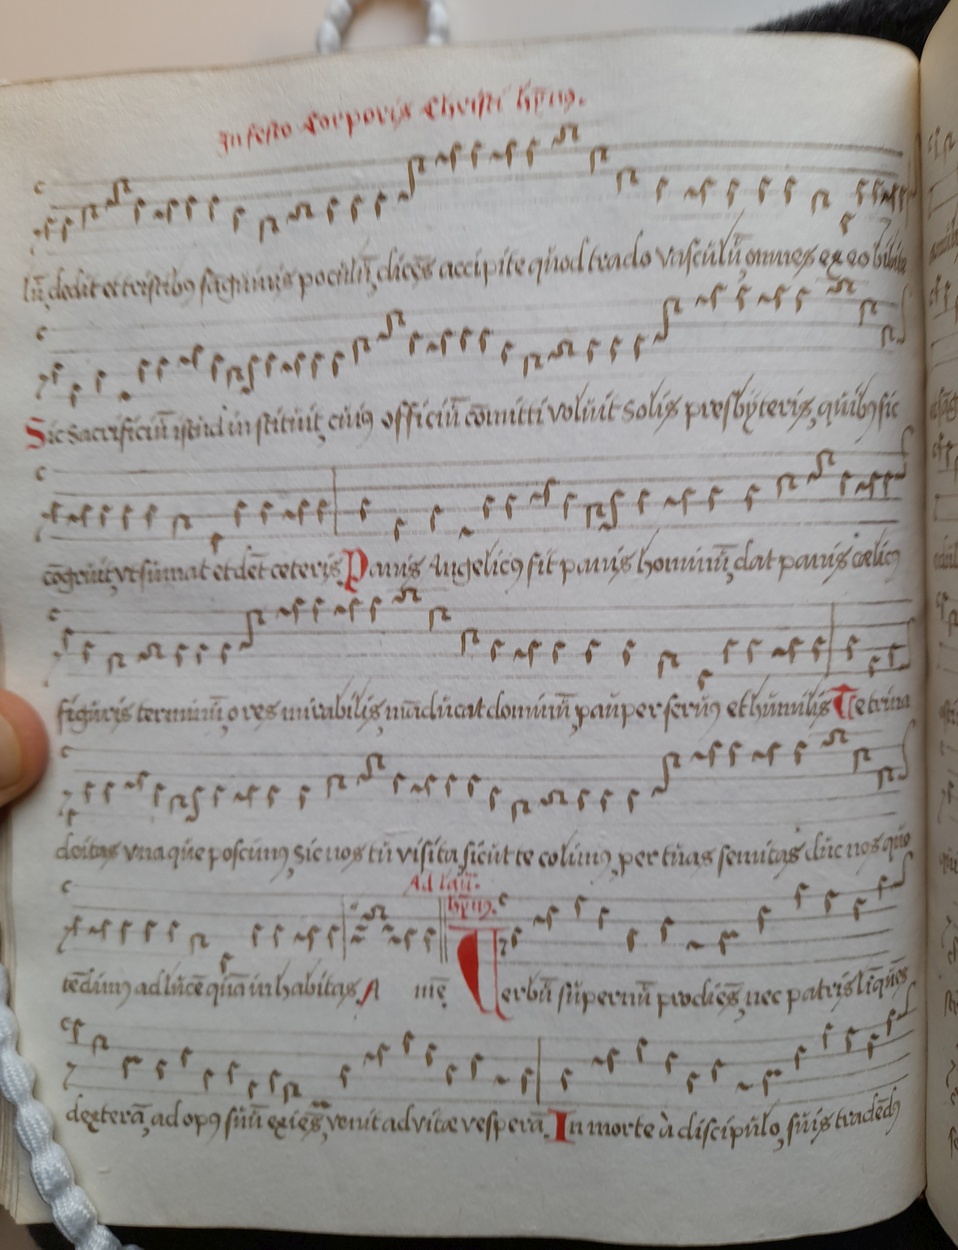 In festo Corporis Christi hȳn9.
lū, dedit et tristibus sāguinis poculū, dicēs accipite quod trado vasculū, omnes ex eo bibite
Sic sacrificiū istud instituit, cui9 officiū cōmitti voluit solis presbyteris, quib9 sic
cōgruit, vt sumāt et dēt ceteris, Panis Angelic9 fit panis hominū, dat panis cœlic9
figuris terminū, o res mirabilis, māducat dominū, pauper seru9 et humilis Te trina
deitas vnaque poscim9, sic nos tu visita, sicut te colim9, per tuas semitas duc nos quo
Ad lau.
hȳn9.
tēdim9 ad lucē quā inhabitas, A mē Verbū supernū prodiēs, nec patris liquēs
dexterā, ad op9 suū exiēs, venit ad vitæ vesperā. In morte à discipulo, suis tradēd9